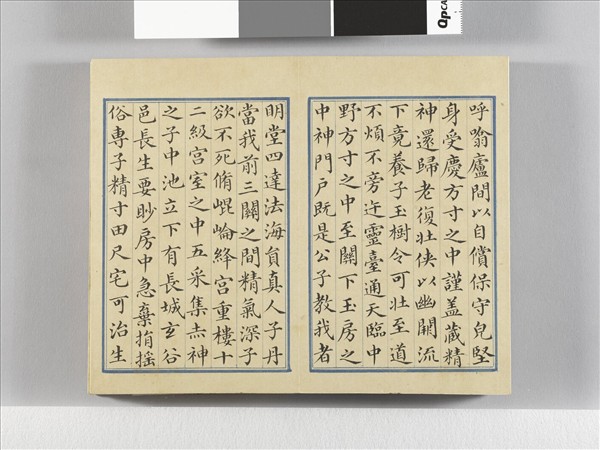 呼噏廬間以自償保守皃堅
身受慶方寸之中謹盖藏精
神還歸老復壯侠以幽闕流
下竟養子玉樹令可壯至道
不煩不旁迕靈臺通天臨中
野方寸之中至關下玉房之
中神門户既是公子教我者
明堂四達法海負真人子丹
當我前三關之間精氣深子
欲不死脩崐崘絳宫重樓十
二級宫室之中五采集赤神
之子中池立下有長城玄谷
邑長生要眇房中急棄捐搖
俗專子精寸田尺宅可治生
QpCA